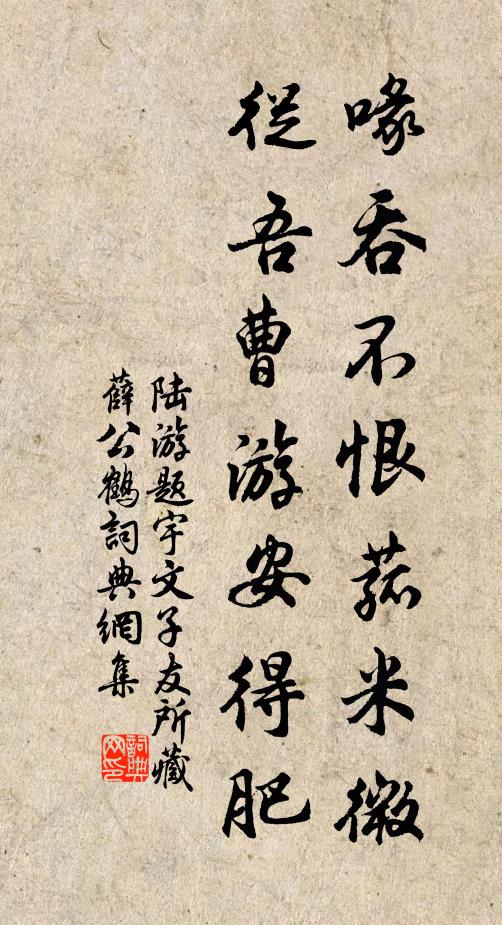 喙吞不恨菰米微
從吾曹游安得肥
陆游題宇文子友所藏
薛公鶴詞典網集
詞典
网印